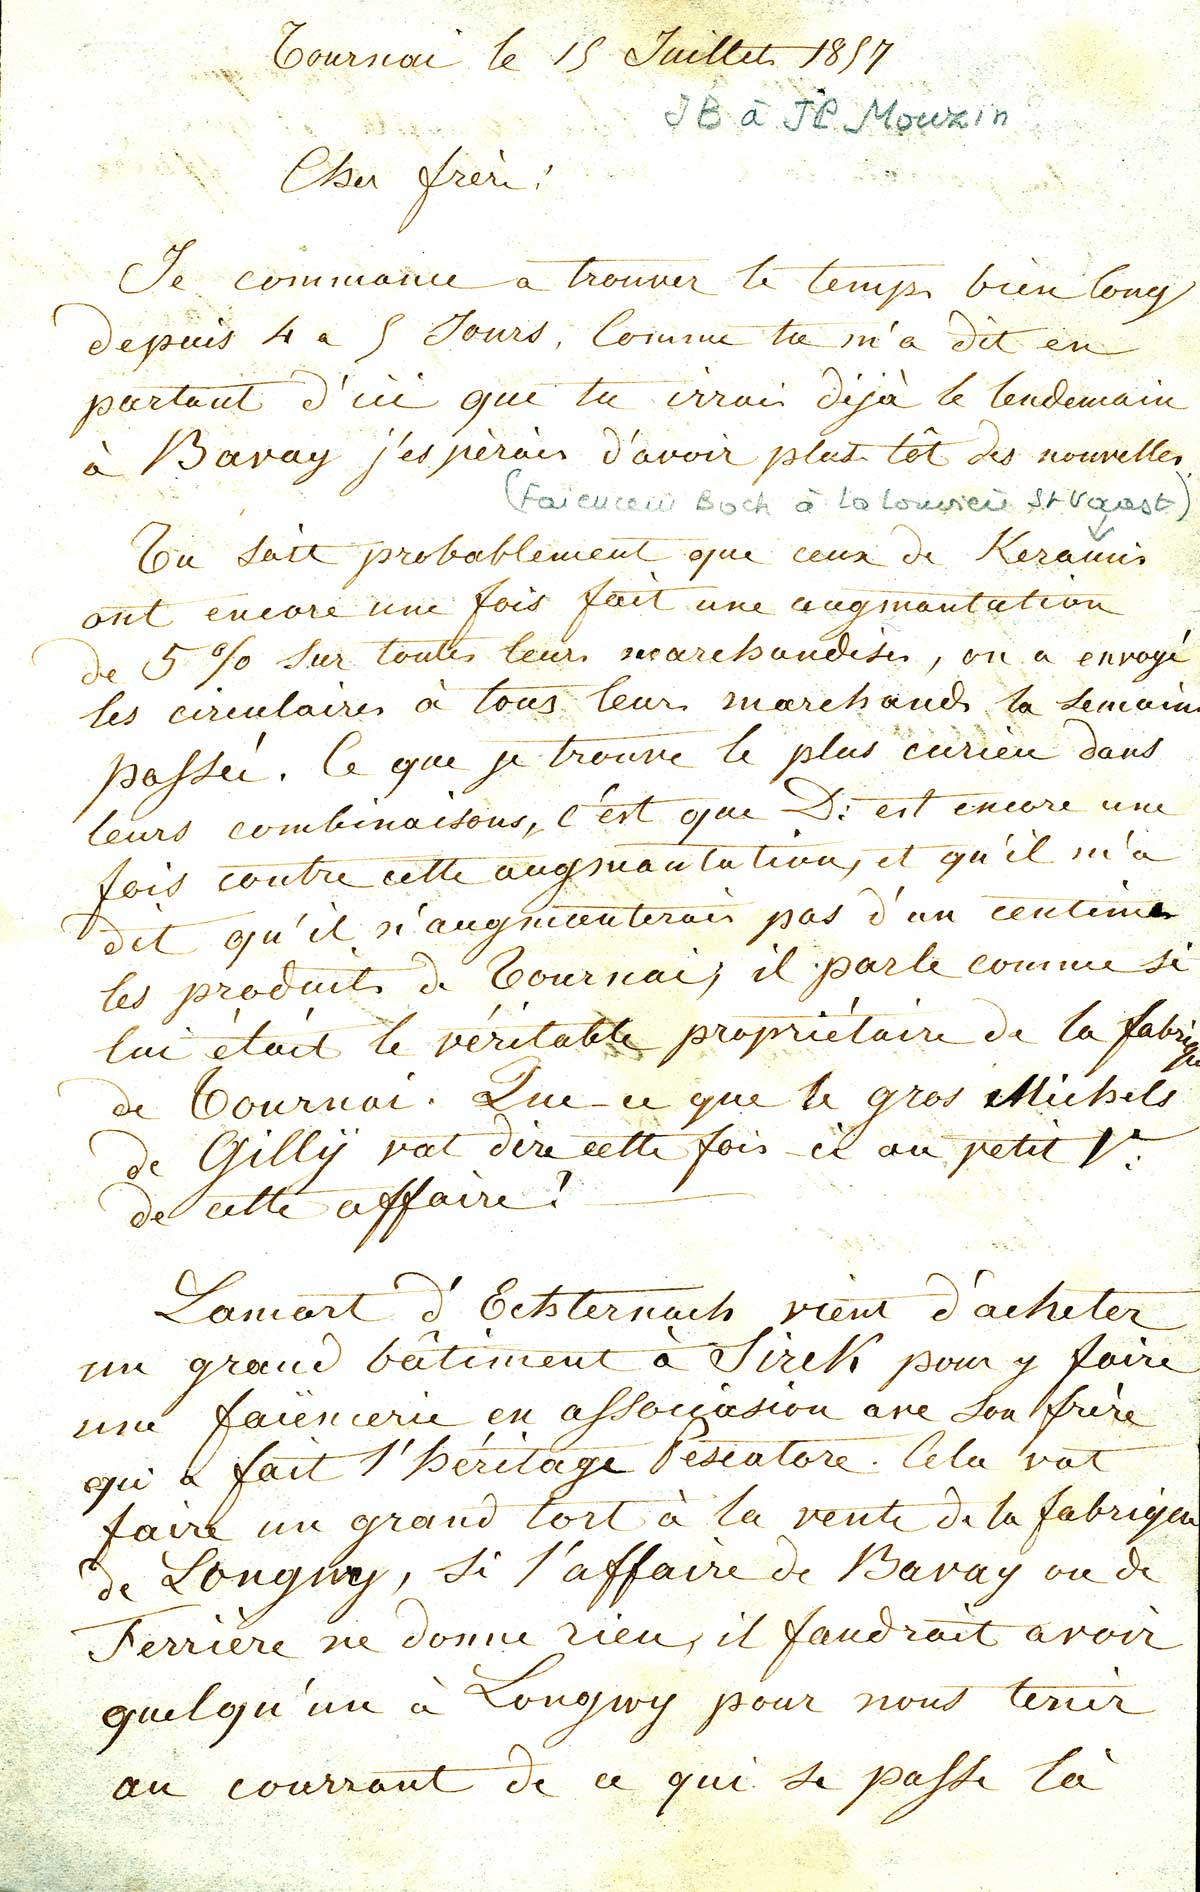 Tournai le 15 Juillet 1857
JB à JP Mouzin
Cher frère!
Je commance a trouver le temps bien long
depuis 4 a 5 Jours, Comme tu m'a dit en
partant d'ici que tu irrais déjà le lendemain
à Bavay j'espèrais d'avoir plus tôt des nouvelles.
(Faïencerie Boch à la Louvière St Vaast)
Tu sait probablement que ceux de Keramis
ont encore une fois fait une augmantation
de 5 % sur toutes leurs marchandises, on a envoyé
les circulaires à tous leurs marchands la semaine
passée. Ce que je trouve le plus curieu dans
leurs combinaisons, c'est que D: est encore une
fois contre cette augmantation, et qu'il m'a
dit qu'il n'augmenterais pas d'un centime
les produits de Tournai, il parle comme si
lui était le véritable propriétaire de la fabrique
de Tournai. Que ce que le gros Michels
de Gillÿ vat dire cette fois-ci au petit V:
de cette affaire?
Lamort d'Echternach vient d'acheter
un grand bâtiment à Sirck pour y faire
une faïencerie en associasion ave son frère
qui a fait l'héritage Pescatore. Cela vat
faire un grand tort à la vente de la fabrique
de Longwy, si l'affaire de Bavay ou de
Ferrière ne donne rien, il faudrait avoir
quelqu'un à Longwy pour nous tenir
au courrant de ce qui se passe là